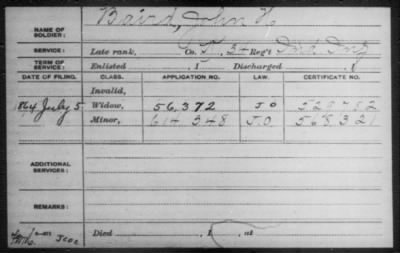 NAME OF SOLDIER: Baird, John H
SERVICE: Late rank, Co. 3 Reg't Ind Inf
TERM OF SERVICE: Enlisted , 1 Discharged , 1
DATE OF FILING. CLASS. APPLICATION NO. LAW. CERTIFICATE NO.
Invalid,
1864 July 5 Widow, 56,372 J.O 528782
Minor, 614 348 J.O. 568,321
ADDITIONAL SERVICES:
REMARKS:
Died , 1 , at